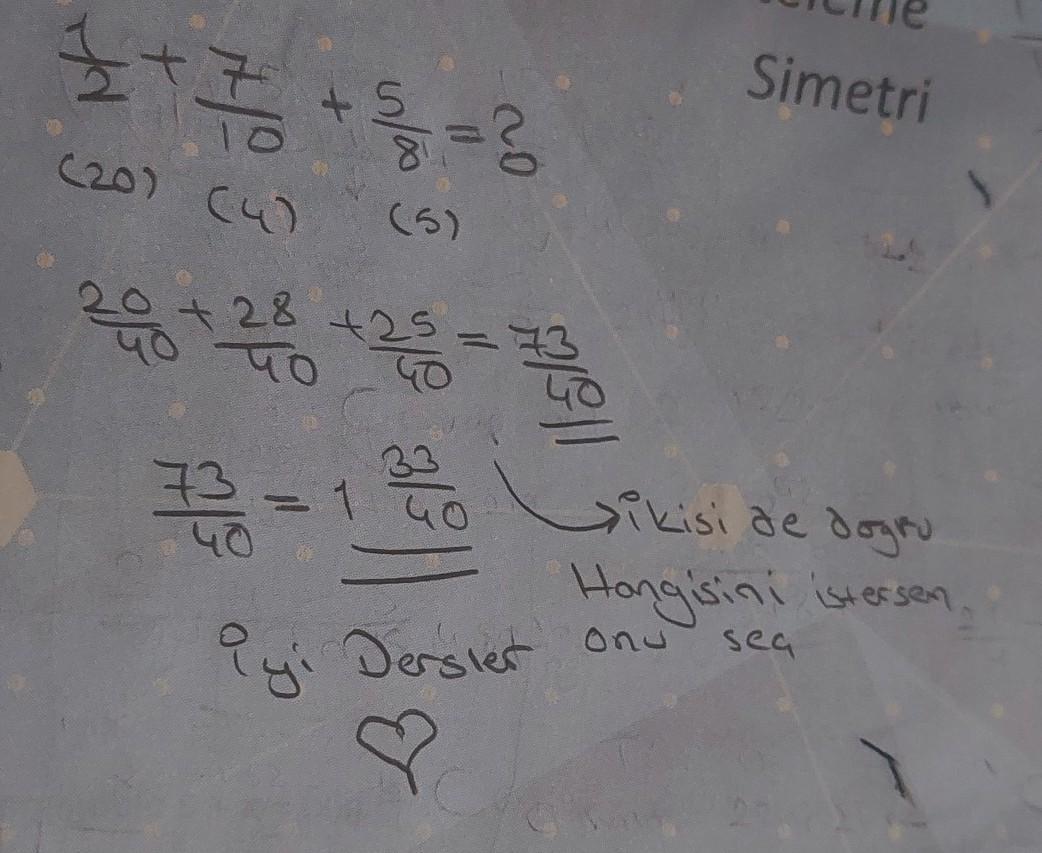 Simetri
1/2 + 7/10 + 5/8 = ?
(20) (4) (5)
20/40 + 28/40 + 25/40 = 73/40
73/40 = 1 33/40
İkisi de dogru
Hangisini istersen
onu seç
İyi Dersler